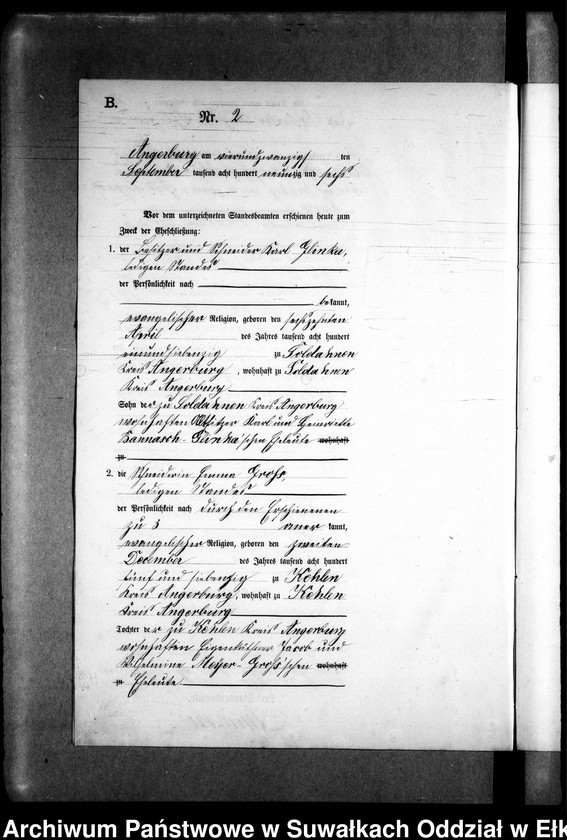 B.
Nr. 2
Angerburg am vierundzwanzigsten
September tausend acht hundert neunzig und sechs
Vor dem unterzeichneten Standesbeamten erschienen heute zum
Zweck der Eheschließung:
1. der Besitzer und Schneider Karl Glinka,
ledigen Standes
der Persönlichkeit nach
bekannt,
evangelischer Religion, geboren den sechszehnten
April des Jahres tausend acht hundert
einundsiebenzig zu Soldahnen
Kreis Angerburg, wohnhaft zu Soldahnen
Kreis Angerburg
Sohn der zu Soldahnen Kreis Angerburg
wohnhaften Altsitzer Karl und Henriette
Glinka'schen Eheleute wohnhaft
zu
2. die Schneiderin Emma Groß,
ledigen Standes
der Persönlichkeit nach durch den Erschienenen
zu 3 aner kannt,
evangelischer Religion, geboren den zweiten
December des Jahres tausend acht hundert
fünf und siebenzig zu Kehlen
Kreis Angerburg, wohnhaft zu Kehlen
Kreis Angerburg
Tochter der zu Kehlen Kreis Angerburg
wohnhaften Eigenkäthner Jacob und
Wilhelmine Meyer-Groß'schen wohnhaft
zu Eheleute
Archiwum Państwowe w Suwałkach Oddział w Ełk